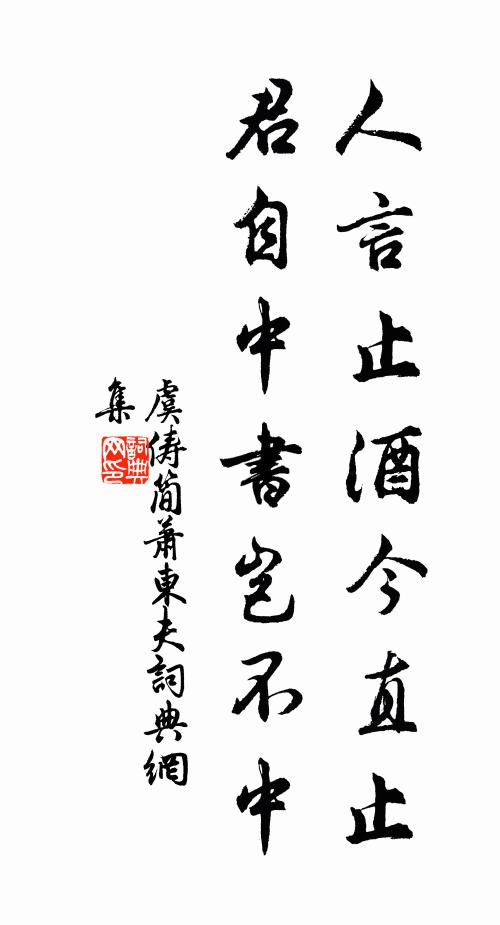 人言止酒今直止
君自中書豈不中
虞儔簡蕭東夫詞典網
集
詞典
网印